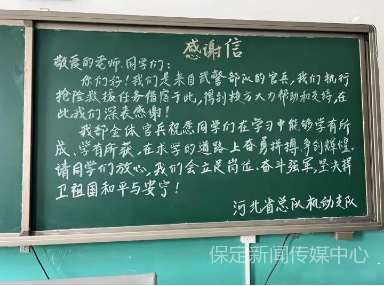 感谢信
敬爱的老师、同学们：
你们好！我们是来自武警部队的官兵，我们执行
抢险救援任务借宿于此，得到校方大力帮助和支持，在
此我们深表感谢！
我部全体官兵祝愿同学们在学习中能够学有所
成、学有所获，在求学的道路上奋勇拼搏，多创辉煌。
请同学们放心，我们会立足岗位，奋斗强军，坚决捍
卫祖国和平与安宁！
河北省总队机动支队
保定新闻传媒中心